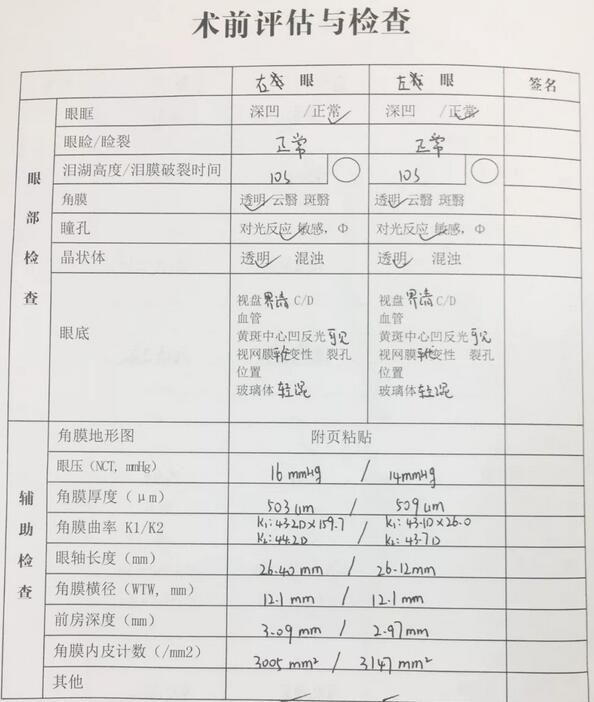 术前评估与检查
右 眼 左 眼 签名
眼部检查
眼眶 深凹 /正常 深凹 /正常
眼睑/睑裂 正常 正常
泪湖高度/泪膜破裂时间 10s 10s
角膜 透明 云翳 斑翳 透明 云翳 斑翳
瞳孔 对光反应 敏感，Φ 对光反应 敏感，Φ
晶状体 透明 混浊 透明 混浊
眼底
视盘界清 C/D 视盘界清 C/D
血管 血管
黄斑中心凹反光可见 黄斑中心凹反光可见
视网膜变性 裂孔 视网膜变性 裂孔
位置 位置
玻璃体轻混 玻璃体轻混
辅助检查
角膜地形图 附页粘贴
眼压（NCT, mmHg） 16 mmHg / 14 mmHg
角膜厚度（μm） 503 μm / 509 μm
角膜曲率 K1/K2 K1: 43.2D×159.7 / K1: 43.1D×26.0
K2: 44.2D K2: 43.7D
眼轴长度（mm） 26.40 mm / 26.12 mm
角膜横径（WTW, mm） 12.1 mm / 12.1 mm
前房深度（mm） 3.09 mm / 2.97 mm
角膜内皮计数（/mm2） 3005 mm² / 3147 mm²
其他